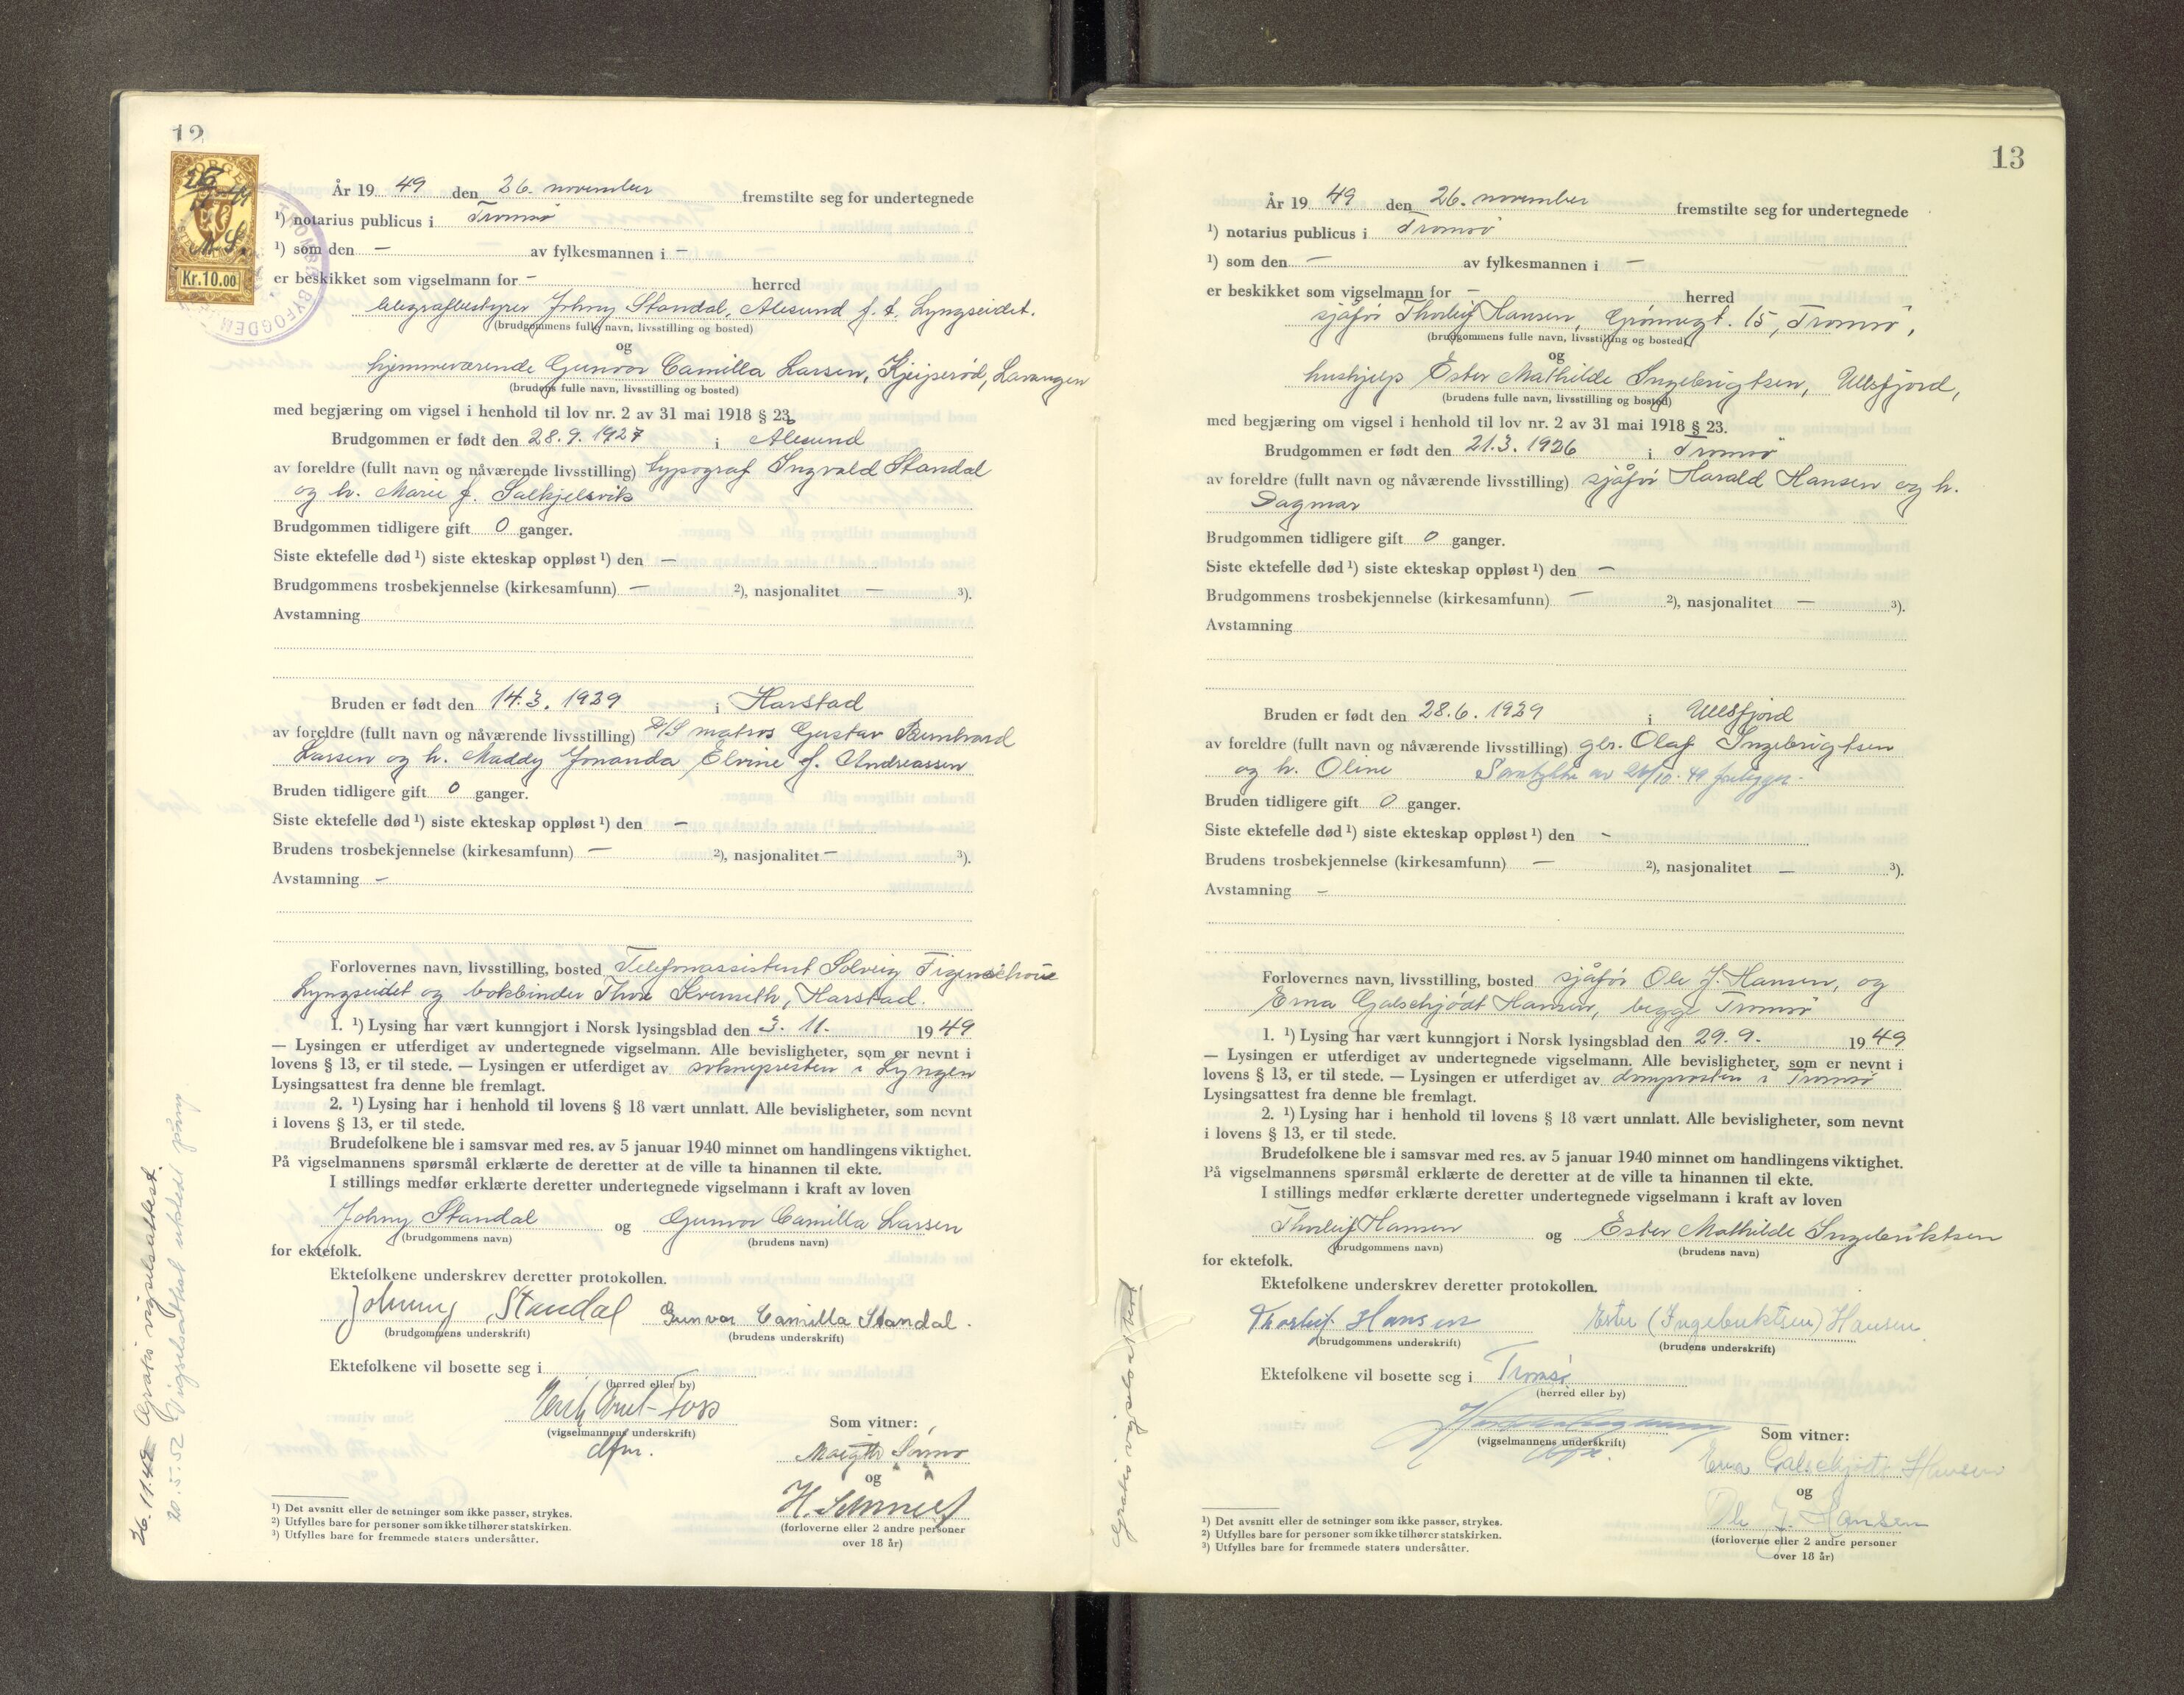 12
NORGE
Kr.10.00
M.S.
TROMSØ BYFOGDEM
År 19 49 den 26. november fremstilte seg for undertegnede
¹) notarius publicus i Tromsø
¹) som den — av fylkesmannen i —
er beskikket som vigselmann for - herred
telegrafbestyrer Johny Standal, Ålesund f. t. Lyngseidet.
(brudgommens fulle navn, livsstilling og bosted)
og
hjemmeværende Gunvor Camilla Larsen, Lavangen
(brudens fulle navn, livsstilling og bosted)
med begjæring om vigsel i henhold til lov nr. 2 av 31 mai 1918 § 23.
Brudgommen er født den 28.9.1927 i Ålesund
av foreldre (fullt navn og nåværende livsstilling) typograf Ingvald Standal
og h. Marie f.
Brudgommen tidligere gift 0 ganger.
Siste ektefelle død ¹) siste ekteskap oppløst ¹) den —
Brudgommens trosbekjennelse (kirkesamfunn) — ²), nasjonalitet — ³).
Avstamning
Bruden er født den 14.3.1929 i Harstad
av foreldre (fullt navn og nåværende livsstilling) D/S matros Gustav Bernhard
Larsen og h. Maddy Jonanda Elvine f. Andreassen
Bruden tidligere gift 0 ganger.
Siste ektefelle død ¹) siste ekteskap oppløst ¹) den —
Brudens trosbekjennelse (kirkesamfunn) — ²), nasjonalitet — ³).
Avstamning -
Forlovernes navn, livsstilling, bosted Telefonassistent Solveig Figenschou
Lyngseidet og bokbinder Thor Harstad.
1. ¹) Lysing har vært kunngjort i Norsk lysingsblad den 3. 11. 1949
— Lysingen er utferdiget av undertegnede vigselmann. Alle bevisligheter, som er nevnt i
lovens § 13, er til stede. — Lysingen er utferdiget av soknepresten i Lyngen
Lysingsattest fra denne ble fremlagt.
2. ¹) Lysing har i henhold til lovens § 18 vært unnlatt. Alle bevisligheter, som nevnt
i lovens § 13, er til stede.
Brudefolkene ble i samsvar med res. av 5 januar 1940 minnet om handlingens viktighet.
På vigselmannens spørsmål erklærte de deretter at de ville ta hinannen til ekte.
I stillings medfør erklærte deretter undertegnede vigselmann i kraft av loven
Johny Standal og Gunvor Camilla Larsen
(brudgommens navn) (brudens navn)
for ektefolk.
Ektefolkene underskrev deretter protokollen.
Johnny Standal Gunvor Camilla Standal.
(brudgommens underskrift) (brudens underskrift)
Ektefolkene vil bosette seg i
(herred eller by)
(vigselmannens underskrift)
dfm.
Som vitner:
og
(forloverne eller 2 andre personer
over 18 år)
¹) Det avsnitt eller de setninger som ikke passer, strykes.
²) Utfylles bare for personer som ikke tilhører statskirken.
³) Utfylles bare for fremmede staters undersåtter.
26.11.49 Gratis vigselsattest.
20.5.52 Vigselsattest utstedt
13
År 19 49 den 26. november fremstilte seg for undertegnede
¹) notarius publicus i Tromsø
¹) som den — av fylkesmannen i —
er beskikket som vigselmann for — herred
sjåfør Thorleif Hansen, Grønnegt. 15, Tromsø,
(brudgommens fulle navn, livsstilling og bosted)
og
hushjelp Ester Mathilde Ingebrigtsen, Ullsfjord,
(brudens fulle navn, livsstilling og bosted)
med begjæring om vigsel i henhold til lov nr. 2 av 31 mai 1918 § 23.
Brudgommen er født den 21.3.1926 i Tromsø
av foreldre (fullt navn og nåværende livsstilling) sjåfør Harald Hansen og h.
Dagmar
Brudgommen tidligere gift 0 ganger.
Siste ektefelle død ¹) siste ekteskap oppløst ¹) den —
Brudgommens trosbekjennelse (kirkesamfunn) — ²), nasjonalitet — ³).
Avstamning
Bruden er født den 28.6.1929 i Ullsfjord
av foreldre (fullt navn og nåværende livsstilling) gbr. Olaf Ingebrigtsen
og h. Oline Samtykke av 26/10.49 foreligger.
Bruden tidligere gift 0 ganger.
Siste ektefelle død ¹) siste ekteskap oppløst ¹) den -
Brudens trosbekjennelse (kirkesamfunn) — ²), nasjonalitet — ³).
Avstamning —
Forlovernes navn, livsstilling, bosted sjåfør Ole J. Hansen, og
Erna Galschjødt Hansen, begge Tromsø
1. ¹) Lysing har vært kunngjort i Norsk lysingsblad den 29. 9. 1949
— Lysingen er utferdiget av undertegnede vigselmann. Alle bevisligheter, som er nevnt i
lovens § 13, er til stede. — Lysingen er utferdiget av domprosten i Tromsø
Lysingsattest fra denne ble fremlagt.
2. ¹) Lysing har i henhold til lovens § 18 vært unnlatt. Alle bevisligheter, som nevnt
i lovens § 13, er til stede.
Brudefolkene ble i samsvar med res. av 5 januar 1940 minnet om handlingens viktighet.
På vigselmannens spørsmål erklærte de deretter at de ville ta hinannen til ekte.
I stillings medfør erklærte deretter undertegnede vigselmann i kraft av loven
Thorleif Hansen og Ester Mathilde Ingebriktsen
(brudgommens navn) (brudens navn)
for ektefolk.
Ektefolkene underskrev deretter protokollen.
Thorleif Hansen Ester (Ingebriktsen) Hansen
(brudgommens underskrift) (brudens underskrift)
Ektefolkene vil bosette seg i Tromsø
(herred eller by)
(vigselmannens underskrift)
Som vitner:
Erna Galschjødt Hansen
og
Ole J. Hansen
(forloverne eller 2 andre personer
over 18 år)
¹) Det avsnitt eller de setninger som ikke passer, strykes.
²) Utfylles bare for personer som ikke tilhører statskirken.
³) Utfylles bare for fremmede staters undersåtter.
Gratis vigselsattest